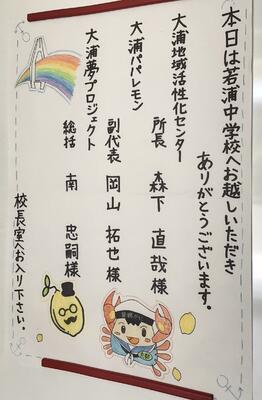 本日は若浦中学校へお越しいただき
ありがとうございます。
大浦地域活性化センター
所長　森下　直哉様
大浦パパレモン
副代表　岡山　拓也様
大浦夢プロジェクト
総括　南　忠嗣様
校長室へお入り下さい。